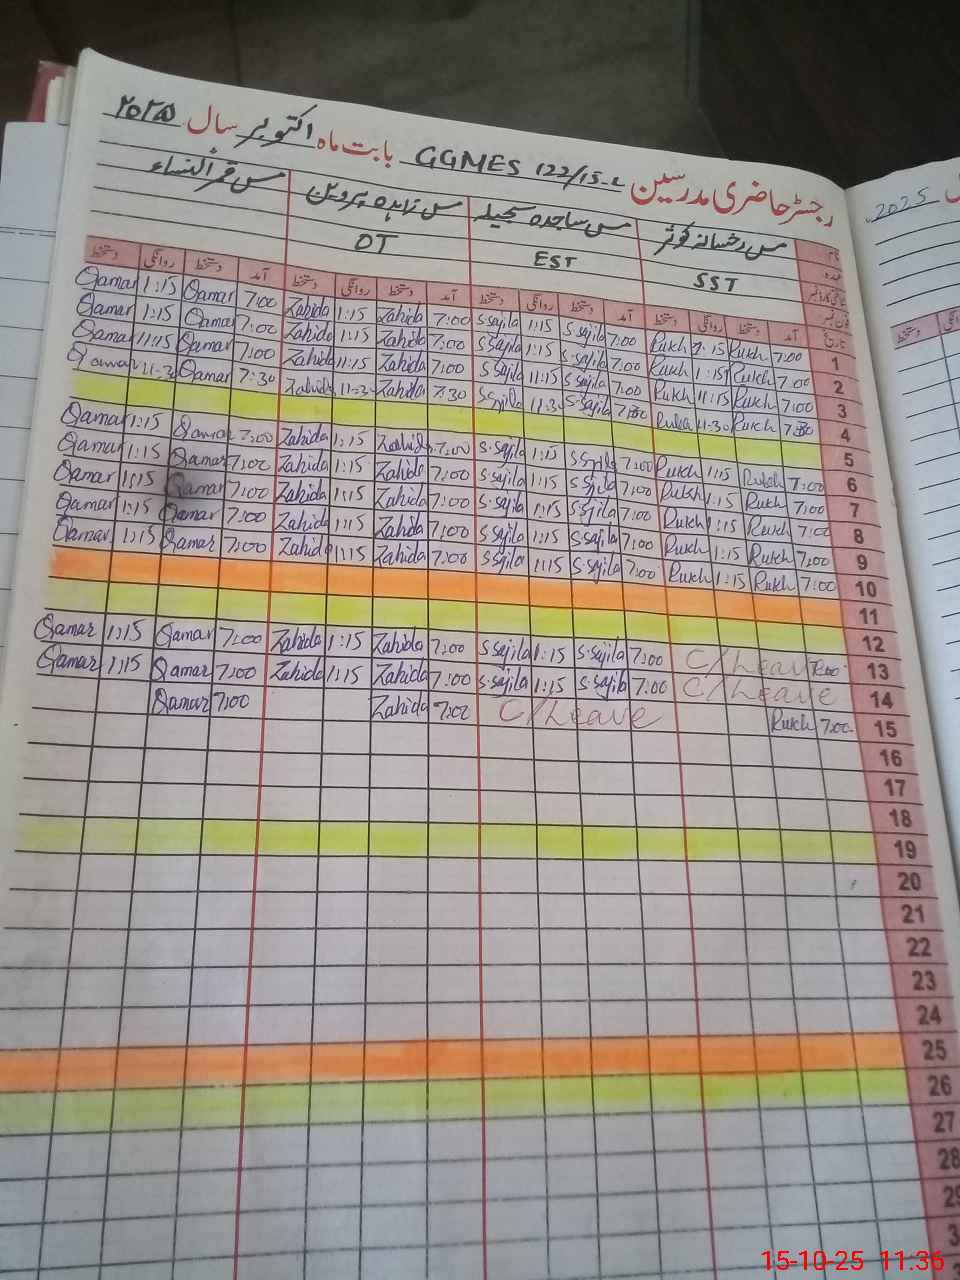 رجسٹر حاضری مدرسین GGMES 122/15-L بابت ماہ اکتوبر سال ۲۰۲۵
نام مس رخسانہ کوثر مس ساجدہ سجیلہ مس زاہدہ پروین مس قمر النساء
عہدہ SST EST DT
تاریخ آمد دستخط روانگی دستخط آمد دستخط روانگی دستخط آمد دستخط روانگی دستخط آمد دستخط روانگی دستخط
Qamar 1:15 Qamar 7:00 Zahida 1:15 Zahida 7:00 S.sajila 1:15 S.sajila 7:00 Rukh 1:15 Rukh 7:00 1
Qamar 1:15 Qamar 7:00 Zahida 1:15 Zahida 7:00 S.sajila 1:15 S.sajila 7:00 Rukh 1:15 Rukh 7:00 2
Qamar 11:15 Qamar 7:00 Zahida 11:15 Zahida 7:00 S.sajila 11:15 S.sajila 7:00 Rukh 11:15 Rukh 7:00 3
Qamar 11:30 Qamar 7:30 Zahida 11:30 Zahida 7:30 S.sajila 11:30 S.sajila 7:30 Rukh 11:30 Rukh 7:30 4
5
Qamar 1:15 Qamar 7:00 Zahida 1:15 Zahida 7:00 S.sajila 1:15 S.sajila 7:00 Rukh 1:15 Rukh 7:00 6
Qamar 1:15 Qamar 7:00 Zahida 1:15 Zahida 7:00 S.sajila 1:15 S.sajila 7:00 Rukh 1:15 Rukh 7:00 7
Qamar 1:15 Qamar 7:00 Zahida 1:15 Zahida 7:00 S.sajila 1:15 S.sajila 7:00 Rukh 1:15 Rukh 7:00 8
Qamar 1:15 Qamar 7:00 Zahida 1:15 Zahida 7:00 S.sajila 1:15 S.sajila 7:00 Rukh 1:15 Rukh 7:00 9
Qamar 1:15 Qamar 7:00 Zahida 1:15 Zahida 7:00 S.sajila 1:15 S.sajila 7:00 Rukh 1:15 Rukh 7:00 10
11
12
Qamar 1:15 Qamar 7:00 Zahida 1:15 Zahida 7:00 S.sajila 1:15 S.sajila 7:00 C/Leave 7:00 13
Qamar 1:15 Qamar 7:00 Zahida 1:15 Zahida 7:00 S.sajila 1:15 S.sajila 7:00 C/Leave 14
Qamar 7:00 Zahida 7:00 C/Leave Rukh 7:00 15
16
17
18
19
20
21
22
23
24
25
26
27
28
2025
دستخط
15-10-25 11:36